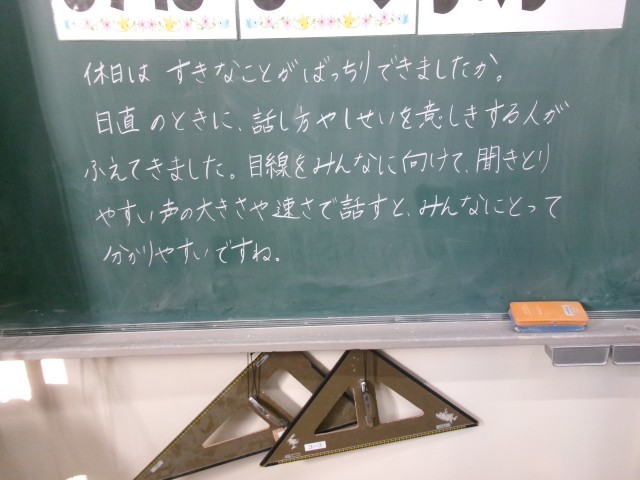 休日は すきなことがばっちりできましたか。
日直のときに、話し方やしせいを意しきする人が
ふえてきました。目線をみんなに向けて、聞きとり
やすい声の大きさや速さで話すと、みんなにとって
分かりやすいですね。